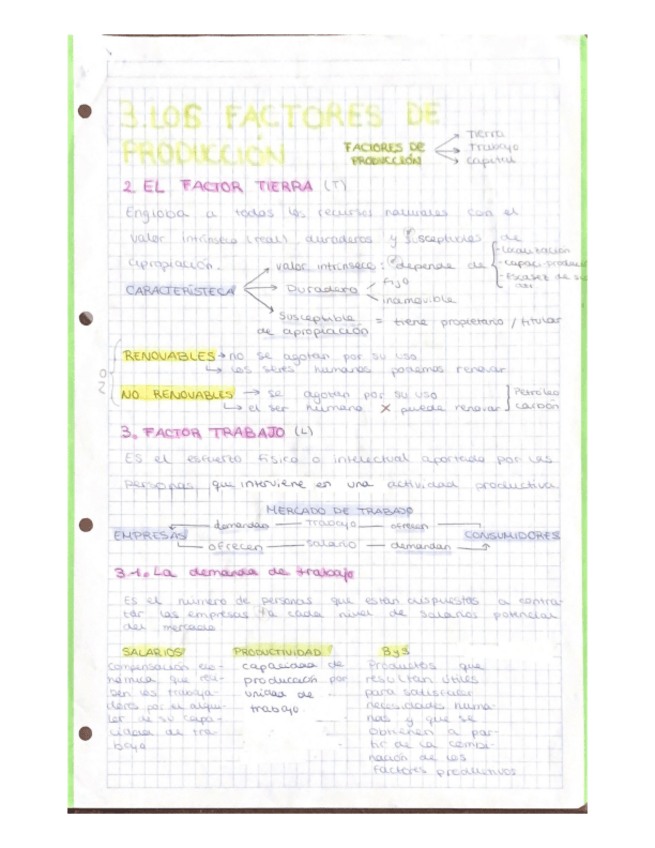 3. LOS FACTORES DE
PRODUCCIÓN
FACTORES DE PRODUCCIÓN → Tierra
→ Trabajo
→ Capital
2. EL FACTOR TIERRA (T)
Engloba a todos los recursos naturales con el
valor intrínseco (real) duraderos y susceptibles de
apropiación.
CARACTERÍSTECA
→ valor intrínseco: depende de
- Localización
- capac. producc
- Escasez de su
→ Duradero < Fijo
inamovible
→ Susceptible = tiene propietario / titular
de apropiación
RENOVABLES → no se agotan por su uso
↳ los seres humanos podemos renovar
NO RENOVABLES → se agotan por su uso
↳ el ser humano X puede renovar
Petróleo
carbón
3. FACTOR TRABAJO (L)
ES el esfuerzo físico o intelectual aportado por las
personas que interviene en una actividad productiva
MERCADO DE TRABAJO
demandan — Trabajo — ofrecen
EMPRESAS CONSUMIDORES
ofrecen — salario — demandan
3.1. La demanda de trabajo
Es el número de personas que están dispuestas a contra-
tar las empresas a cada nivel de salarios potencial
del mercado
SALARIOS
compensación eco-
nómica que reci-
ben los trabaja-
dores por el alqui-
ler de su capa-
cidad de tra-
bajo
PRODUCTIVIDAD
capacidad de
producción por
unidad de
trabajo.
B y S
Productos que
resultan útiles
para satisfacer
necesidades huma-
nas y que se
obtienen a par-
tir de la combi-
nación de los
factores productivos